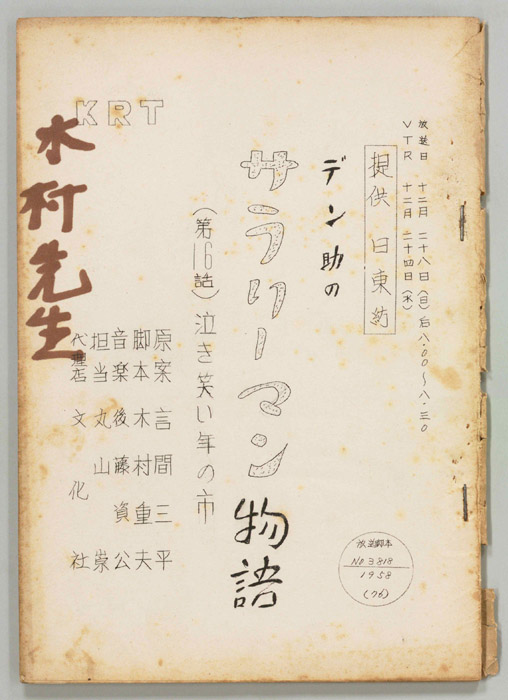 放送日 十二月 二十八日(日)后八.〇〇〜八.三〇
VTR 十二月 二十四日(水)
提供 日東紡
デン助の
サラリーマン物語
(第16話)泣き笑い年の市
原案 言問三平
脚本 木村重夫
音楽 後藤資公
担当 丸山崇
代理店 文化社
KRT
木村先生
放送脚本
No 3818
1958
(76)